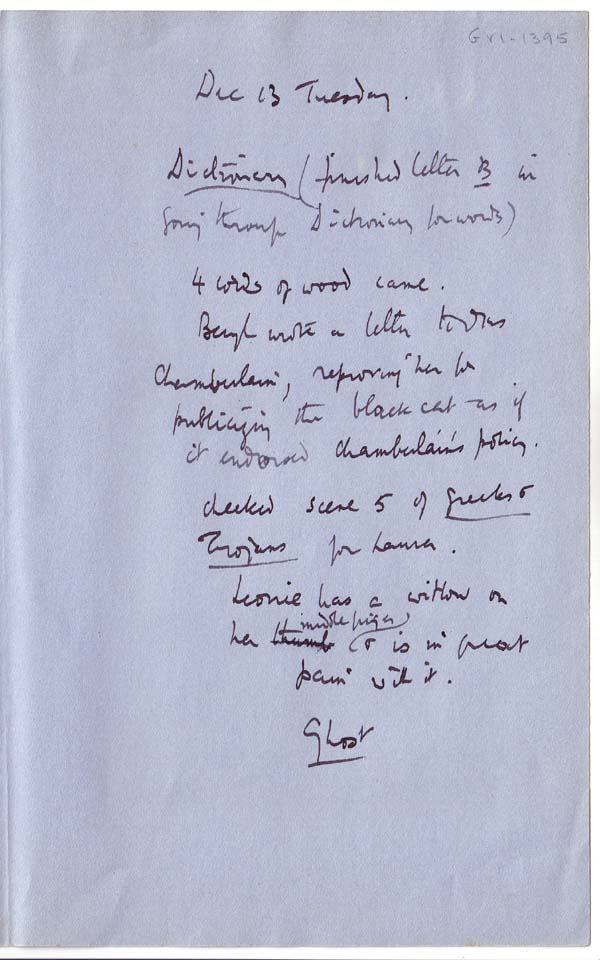 GVI-1395
Dec 13 Tuesday.
Dictionary (finished letter B in
going through Dictionary for words)
4 cords of wood came.
Beryl wrote a letter to Mrs
Chamberlain, reproving her for
publicizing the black cat as if
it endorsed Chamberlain's policy.
checked scene 5 of Greeks &
Trojans for Laura.
Leonie has a witlow on
middle finger
her thumb & is in great
pain with it.
Ghost